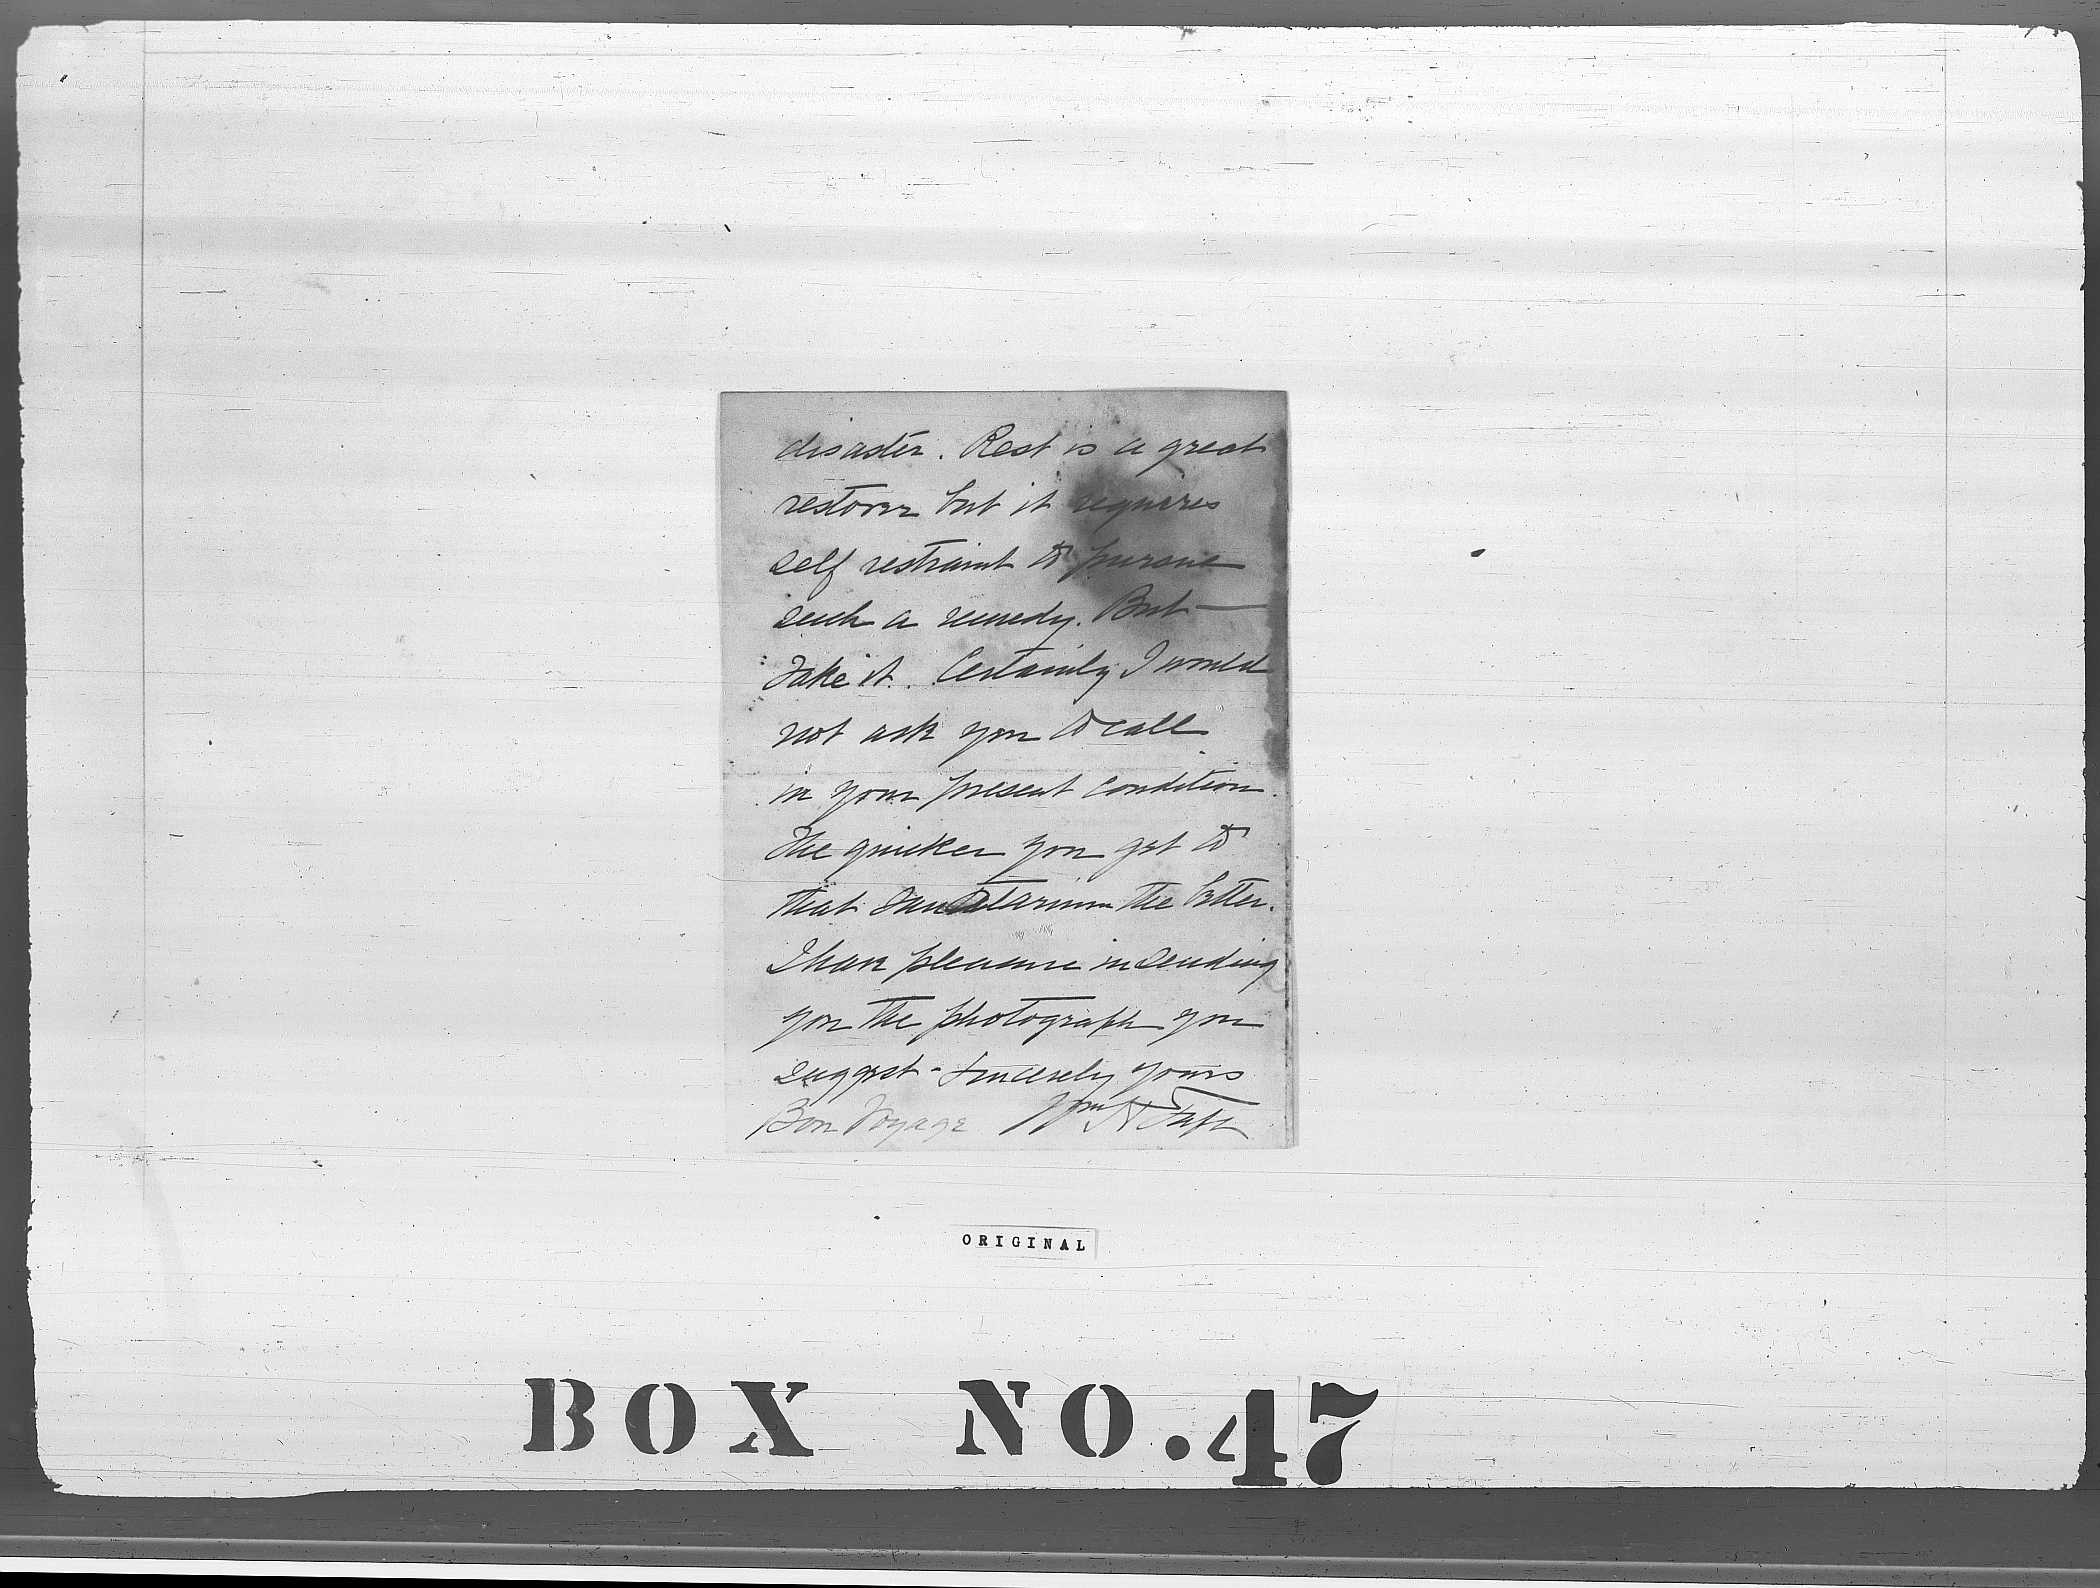 disaster. Rest is a great
restorer but it requires
self restraint to pursue
such a remedy. But —
Take it. Certainly I would
not ask you to call
in your present condition.
The quicker you get to
that Sanitarium the better.
I have pleasure in sending
you the photograph you
suggest - Sincerely yours
Bon Voyage Wm H Taft
ORIGINAL
BOX NO. 47